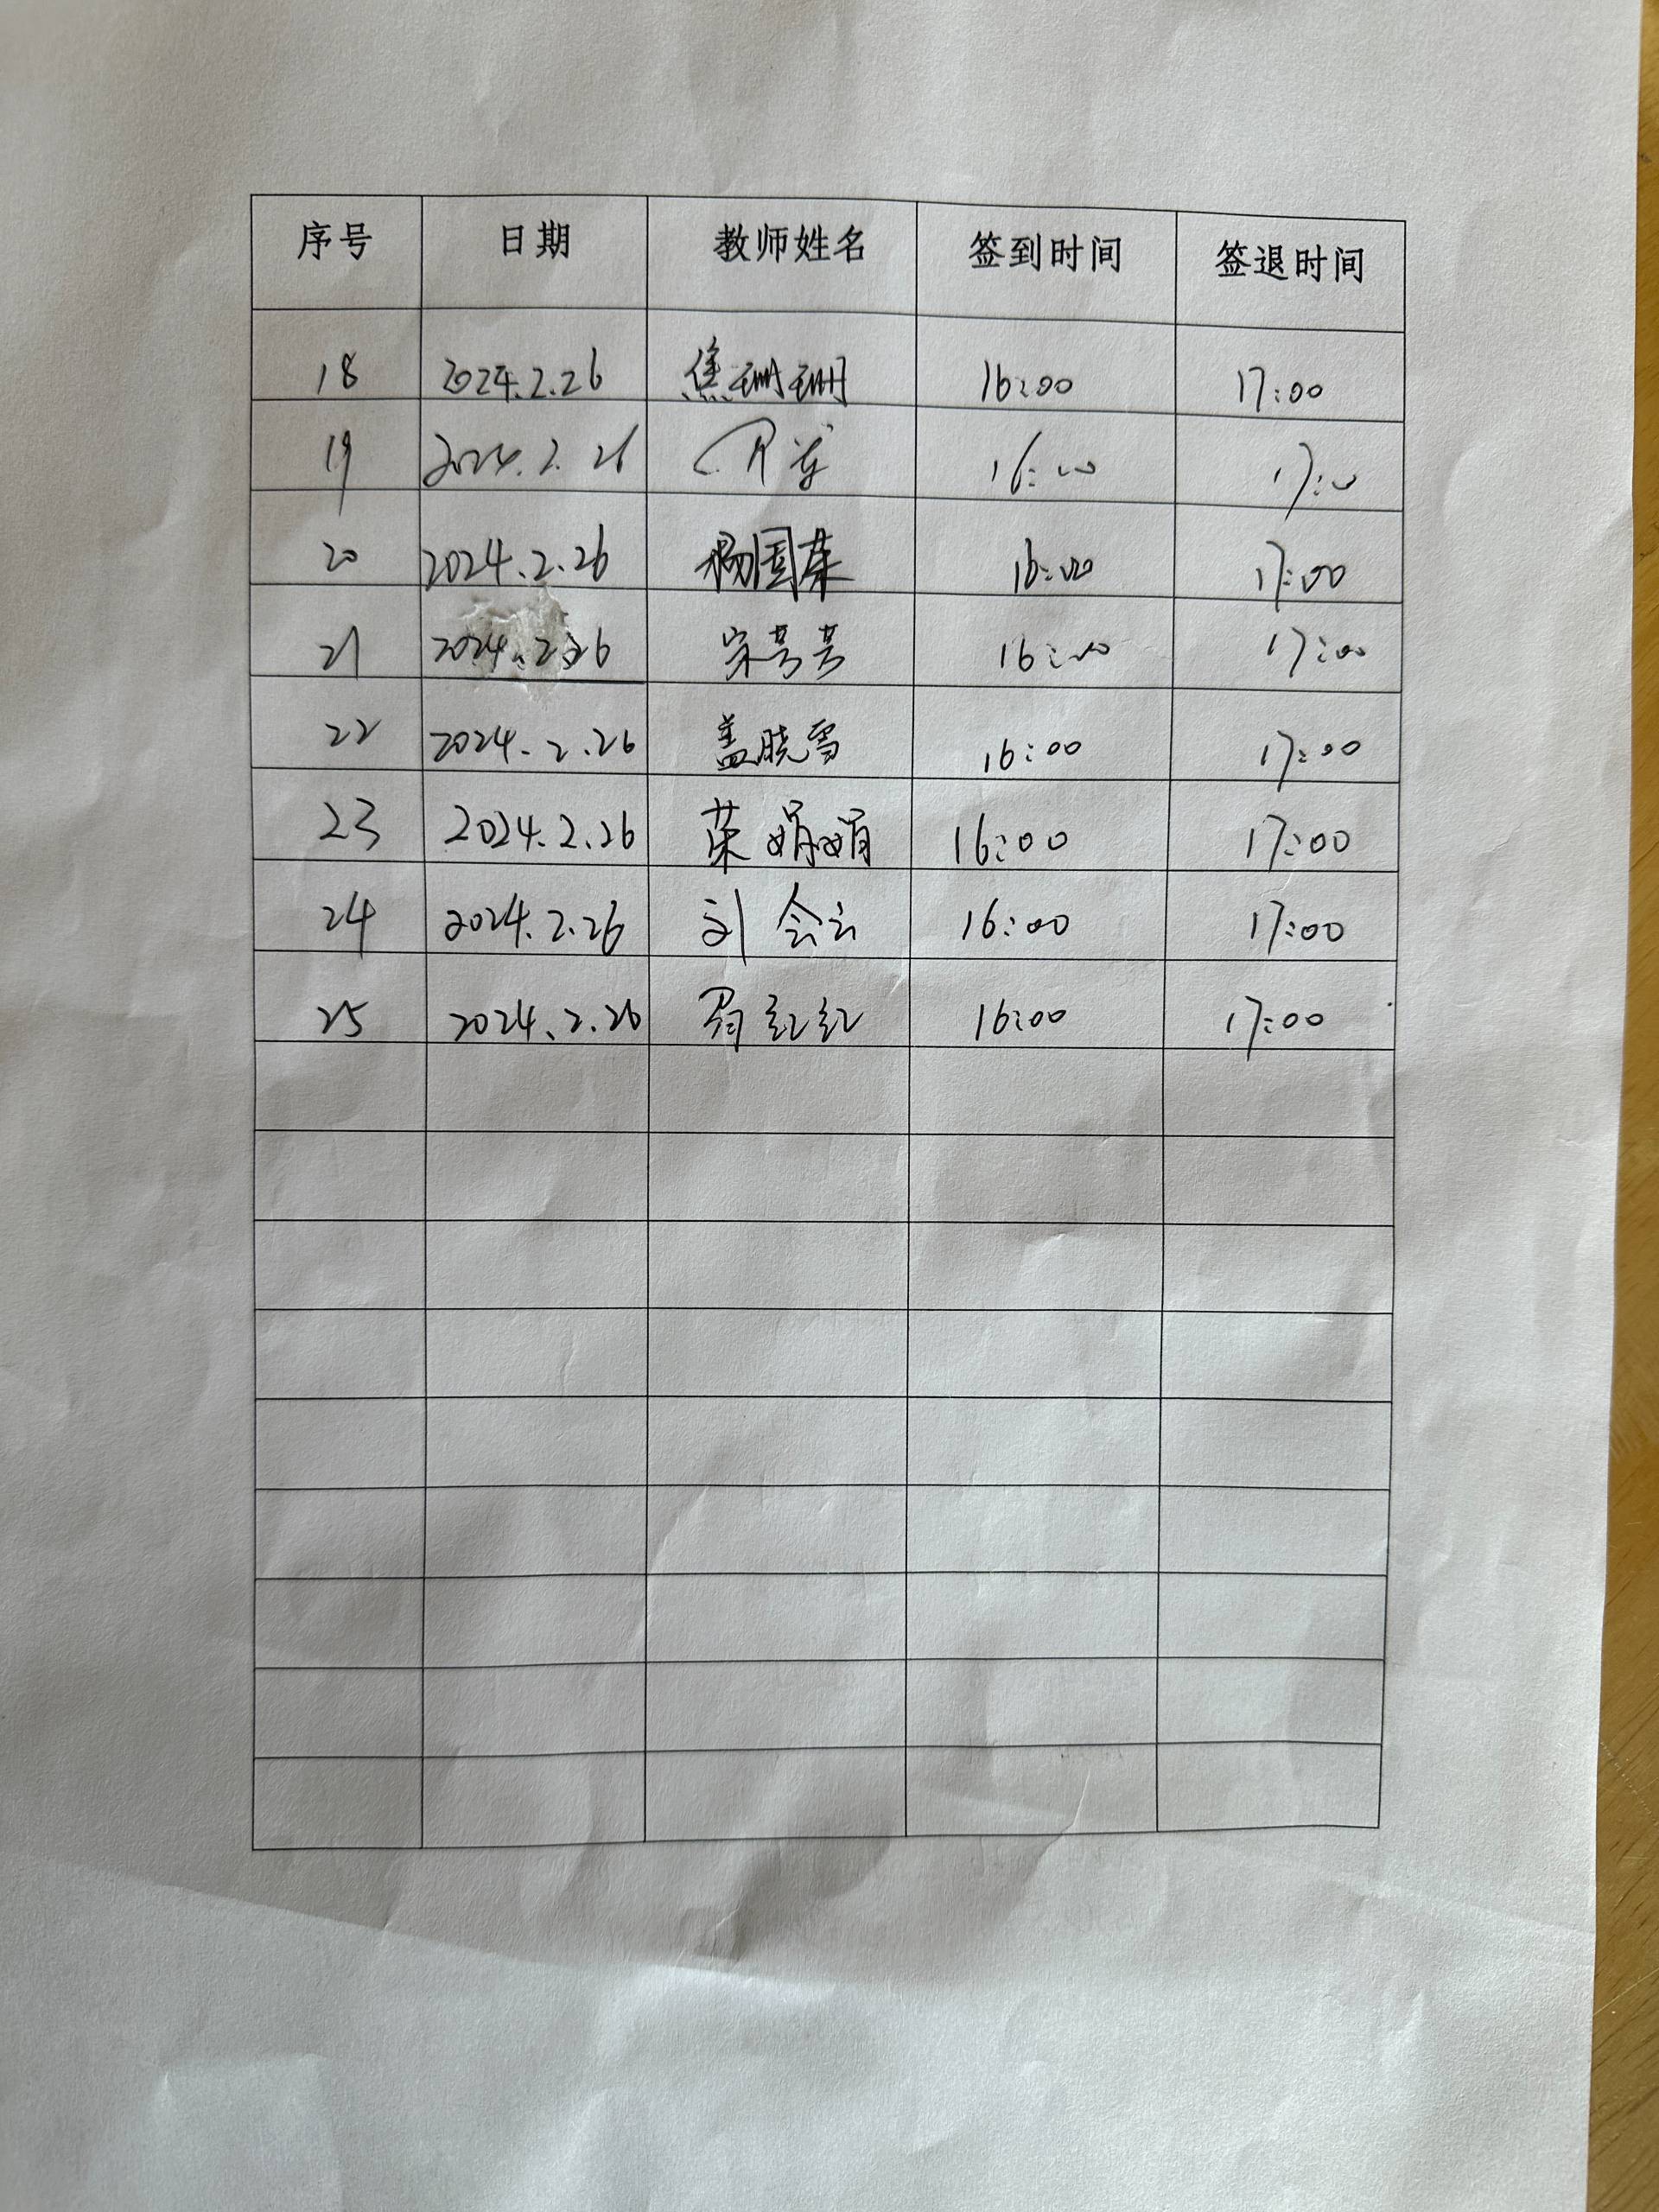 序号 日期 教师姓名 签到时间 签退时间
18 2024.2.26 焦珊珊 16:00 17:00
19 2024.2.26 16:00 17:00
20 2024.2.26 杨国荣 16:00 17:00
21 2024.2.26 宋芳芳 16:00 17:00
22 2024.2.26 盖晓雪 16:00 17:00
23 2024.2.26 荣娟娟 16:00 17:00
24 2024.2.26 刘会云 16:00 17:00
25 2024.2.26 红红 16:00 17:00